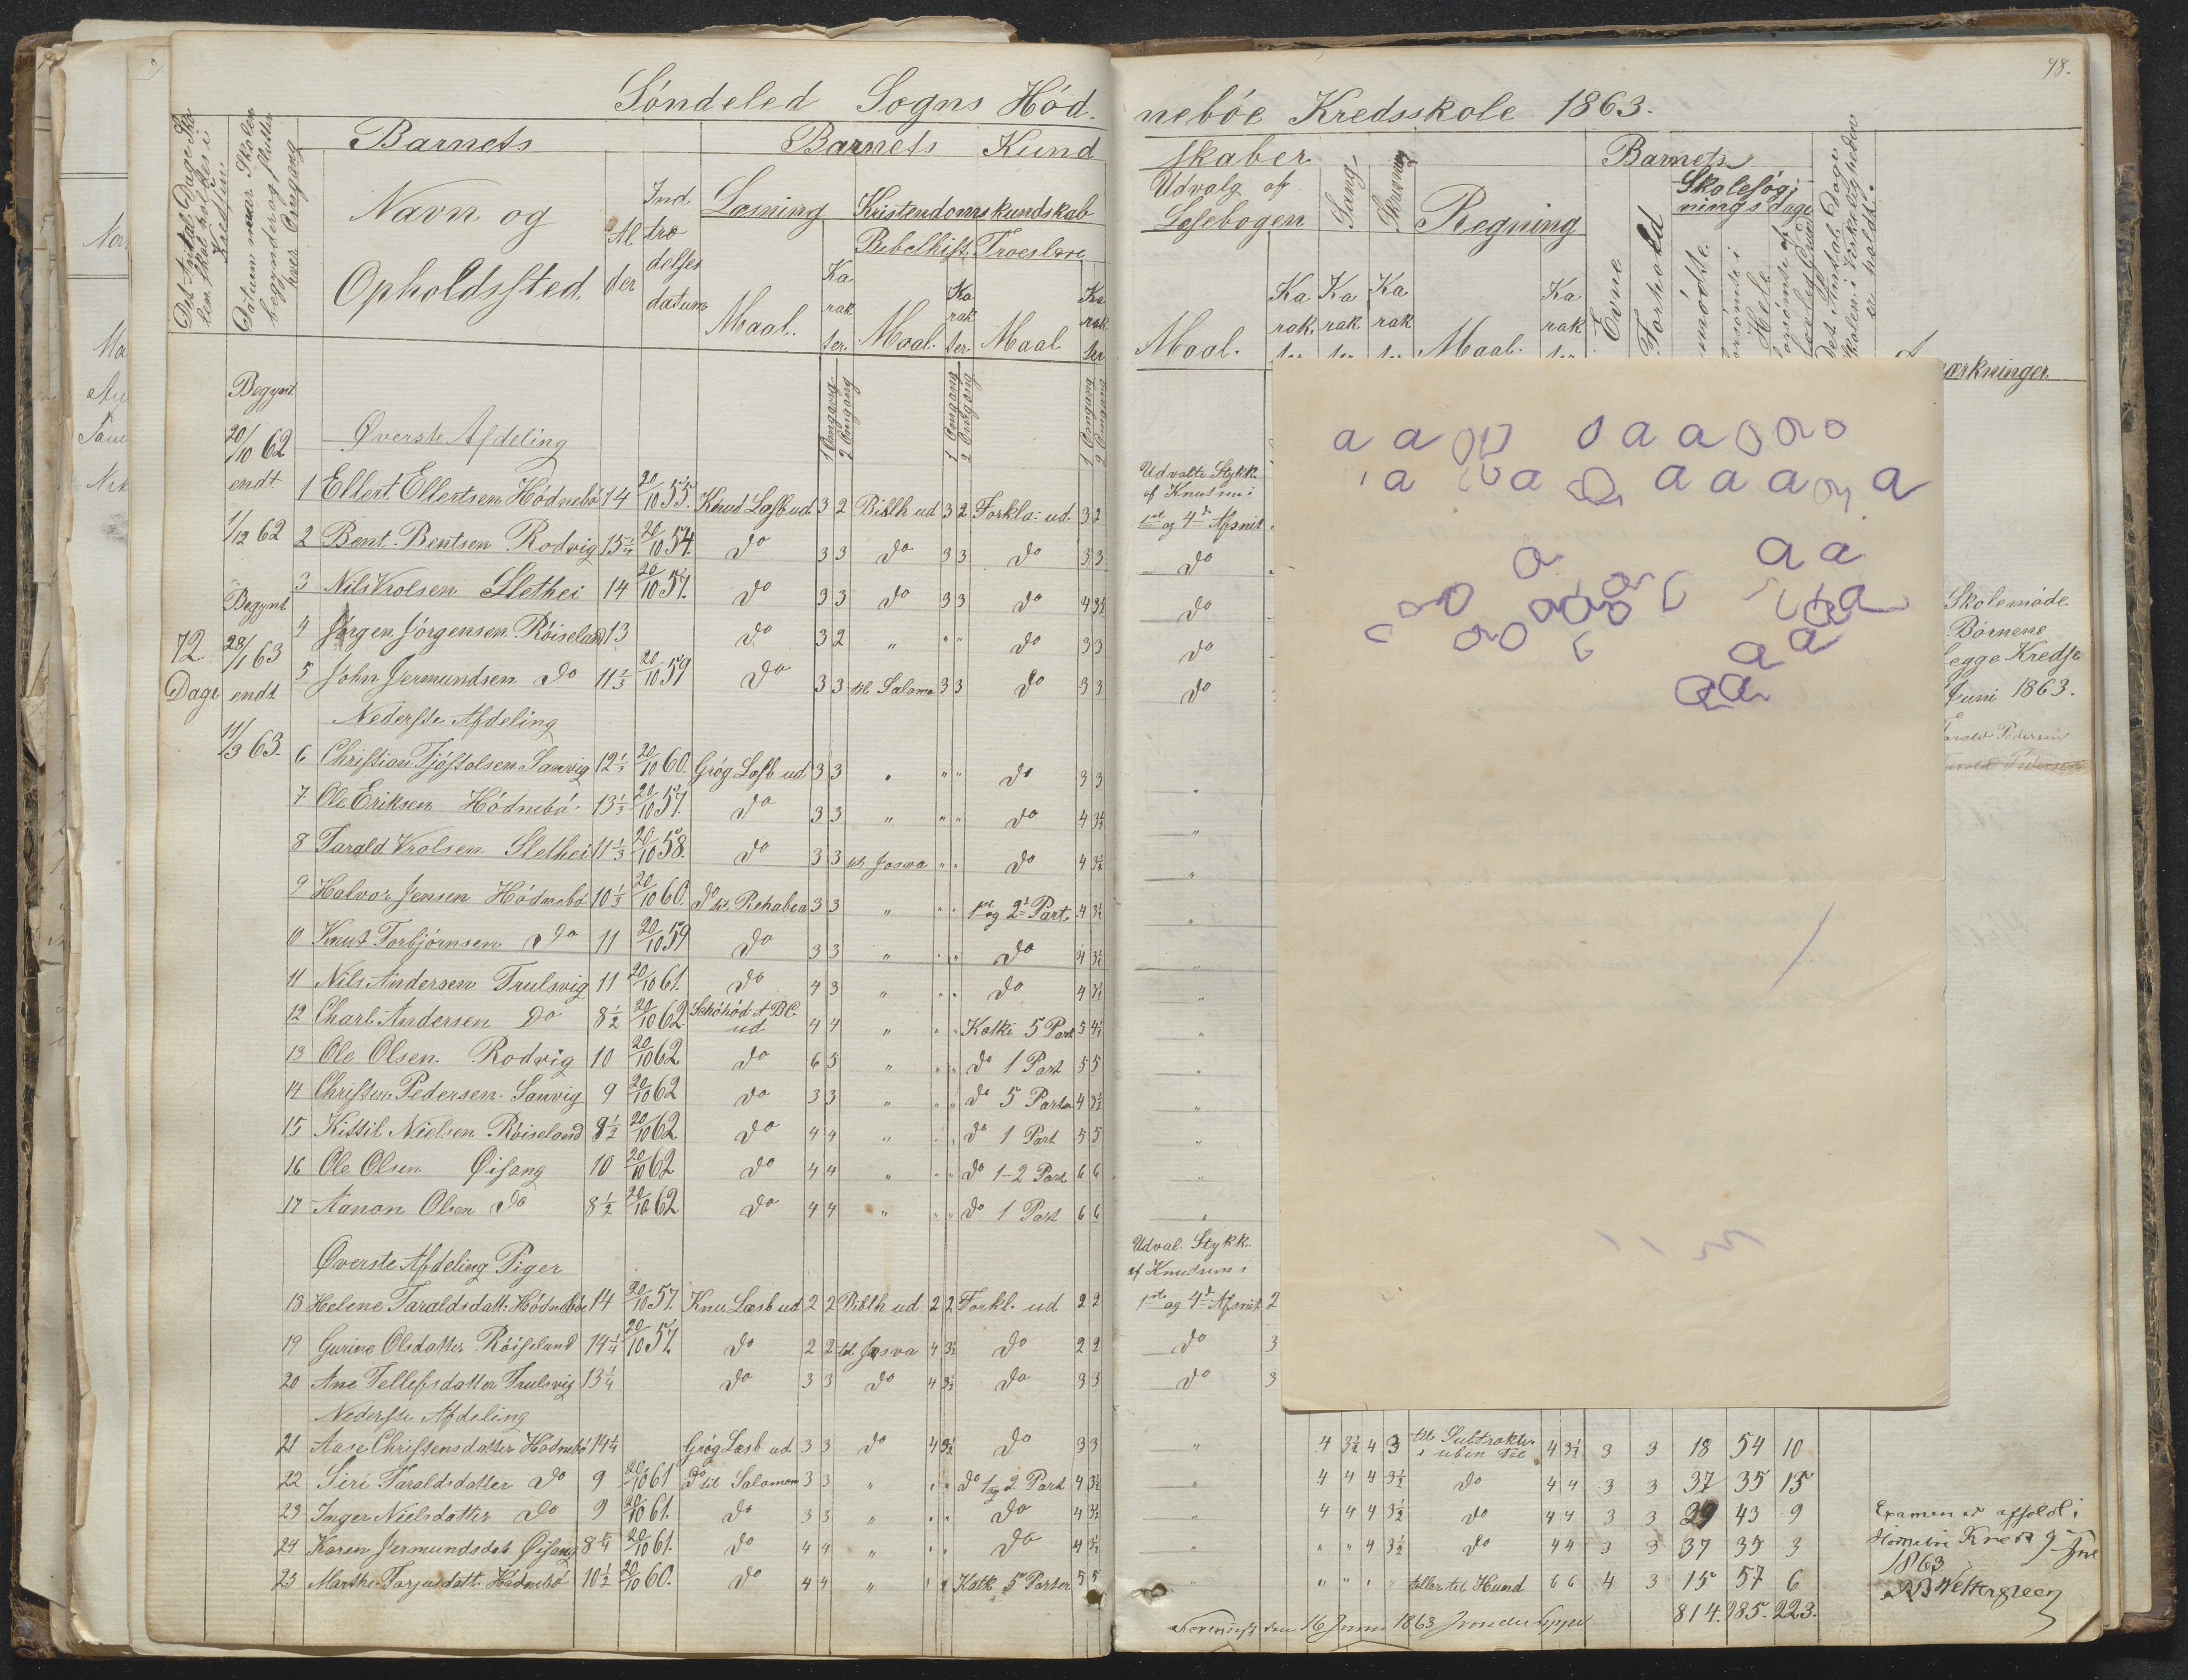 98.
Søndeled Sogns Hód-
nebóe Kredsskole 1863.
Det Antal Dage Sko
len skal holdes i
Kredsen
Datum naar Skolen
begynder og slutter
hver Omgang
Barnets
Navn og
Opholdssted.
Al
der
Ind
træ
delses
datum
Barnets Kund
skaber
Læsning
Maal.
Ka
rak
ter.
Kristendomskundskab
Bibelhist.
Troeslære
Maal.
Ka
rak
ter
Maal
Ka
rak
ter
Udvalg af
Læsebogen
Maal.
Ka
rak.
Sang
Ka
rak
Skrivning
Ka
rak
Regning
Maal.
Ka
rak
Barnets
Evne
Forhold
Skolesøg-
nings dage
mødte
Det Antal Dage
Skolen i Virkeligheden
er holdt.
mærkninger
1 Omgang
2 Omgang
1 Omgang
2 Omgang
1 Omgang
2 Omgang
Begynt
20/10 62
endt
1/12 62
Begynt
28/1 63
endt
11/3 63.
72
Dage
Øverste Afdeling
1 Ellert Ellertsen Hódnebó 14 20/10 55. Knud Læsb ud 3 2 Biblh ud 3 2 Forkla: ud. 3 2
2 Bent Bentsen Rodvig 15 1/4 20/10 54. do 3 3 do 3 3 do 3 3
3 Nils Vrolsen Slethei 14 20/10 57. do 3 3 do 3 3 do 4 3½
4 Jørgen Jórgensen Róiseland 13 do 3 2 " " " do 3 3
5 John Jermundsen do 11 2/3 20/10 59 do 3 3 til Salomo 3 3 do 3 3
Nederste Afdeling
6 Christian Tjóstolsen Sanvig 12 1/3 20/10 60. Gróg Læsb ud 3 3 " " " do 3 3
7 Ole Eriksen Hódnebó 13 1/3 20/10 57. do 3 3 " " " do 4 3½
8 Tarald Vrolsen Slethei 11 1/3 20/10 58. do 3 3 til Josva " " do 4 3½
9 Halvor Jensen Hódnebó 10 1/3 20/10 60. do til Rehabea 3 3 " " " 1ste og 2d Part. 4 3½
10 Knut Torbjórnsen do 11 20/10 59 do 3 3 " " " do 4 3½
11 Nils Andersen Trulsvig 11 20/10 61. do 4 3 " " " do 4 3½
12 Charl Andersen do 8½ 20/10 62 ABC. ud 4 4 " " " Katki 5 Part 5 4½
13 Ole Olsen Rodvig 10 20/10 62 do 6 5 " " " do 1 Part 5 5
14 Christen Pedersen Sanvig 9 20/10 62 do 3 3 " " " do 5 Parter 4 3½
15 Kittil Nielsen Róiseland 8½ 20/10 62 do 4 4 " " " do 1 Part 5 5
16 Ole Olsen Øisang 10 20/10 62 do 4 4 " " " do 1-2 Part 6 6
17 Aanon Olsen do 8½ 20/10 62 do 4 4 " " " do 1 Part 6 6
Øverste Afdeling Piger
18 Helene Taraldsdatt. Hódnebóe 14 20/10 57. Knu Læsb ud 2 2 Biblh ud 2 2 Forkl. ud 2 2
19 Gurine Olsdatter Róiseland 14 1/4 20/10 57. do 2 2 til Josva 4 3½ do 2 2
20 Ane Tellefsdatter Trulsvig 13 1/4 do 3 3 do 4 3½ do 3 3
Nederste Afdeling
21 Aase Christensdatter Hódnebó 14 1/4 Gróg Læsb ud 3 3 do 4 3½ do 3 3
22 Siri Taraldsdatter do 9 20/10 61 do til Salomon 3 3 " " " do 1 og 2 Part 4 3½
23 Inger Nielsdatter do 9 20/10 61. do 3 3 " " " do 4 3½
24 Karen Jermundsdat Øisang 8 1/4 20/10 61. do 4 4 " " " do 4 3½
25 Marthe Tarjusdatt. Hódnebó 10½ 20/10 60. do 4 4 " " " Katk 5 Parter 5 5
Udvalte Stykk
af Knutsens i
1ste og 4d Afsnit
do
do
do
do
Udval. Stykk
af Knutsens i
1ste og 4d Afsnit 2
do 3
do 3
" 4 3½ 4 3 til Subtraktion i uben Tal 4 3½ 3 3 18 54 10
" 4 4 4 3½ do 4 4 3 3 37 35 15
" 4 4 4 3½ do 4 4 3 3 29 43 9
" " " 4 3½ do 4 4 3 3 37 35 3
" " " " tæller til Hund 6 6 4 3 15 57 6
814. 985. 223.
16 Juni 1863
a a a a a
a a a a a a
a a a
a
a a
a a
Skolemøde
Børnene
Begge Kredse
Juni 1863.
Tarald Pedersen
Examen er afholdt i
Kreds 9 June
1863